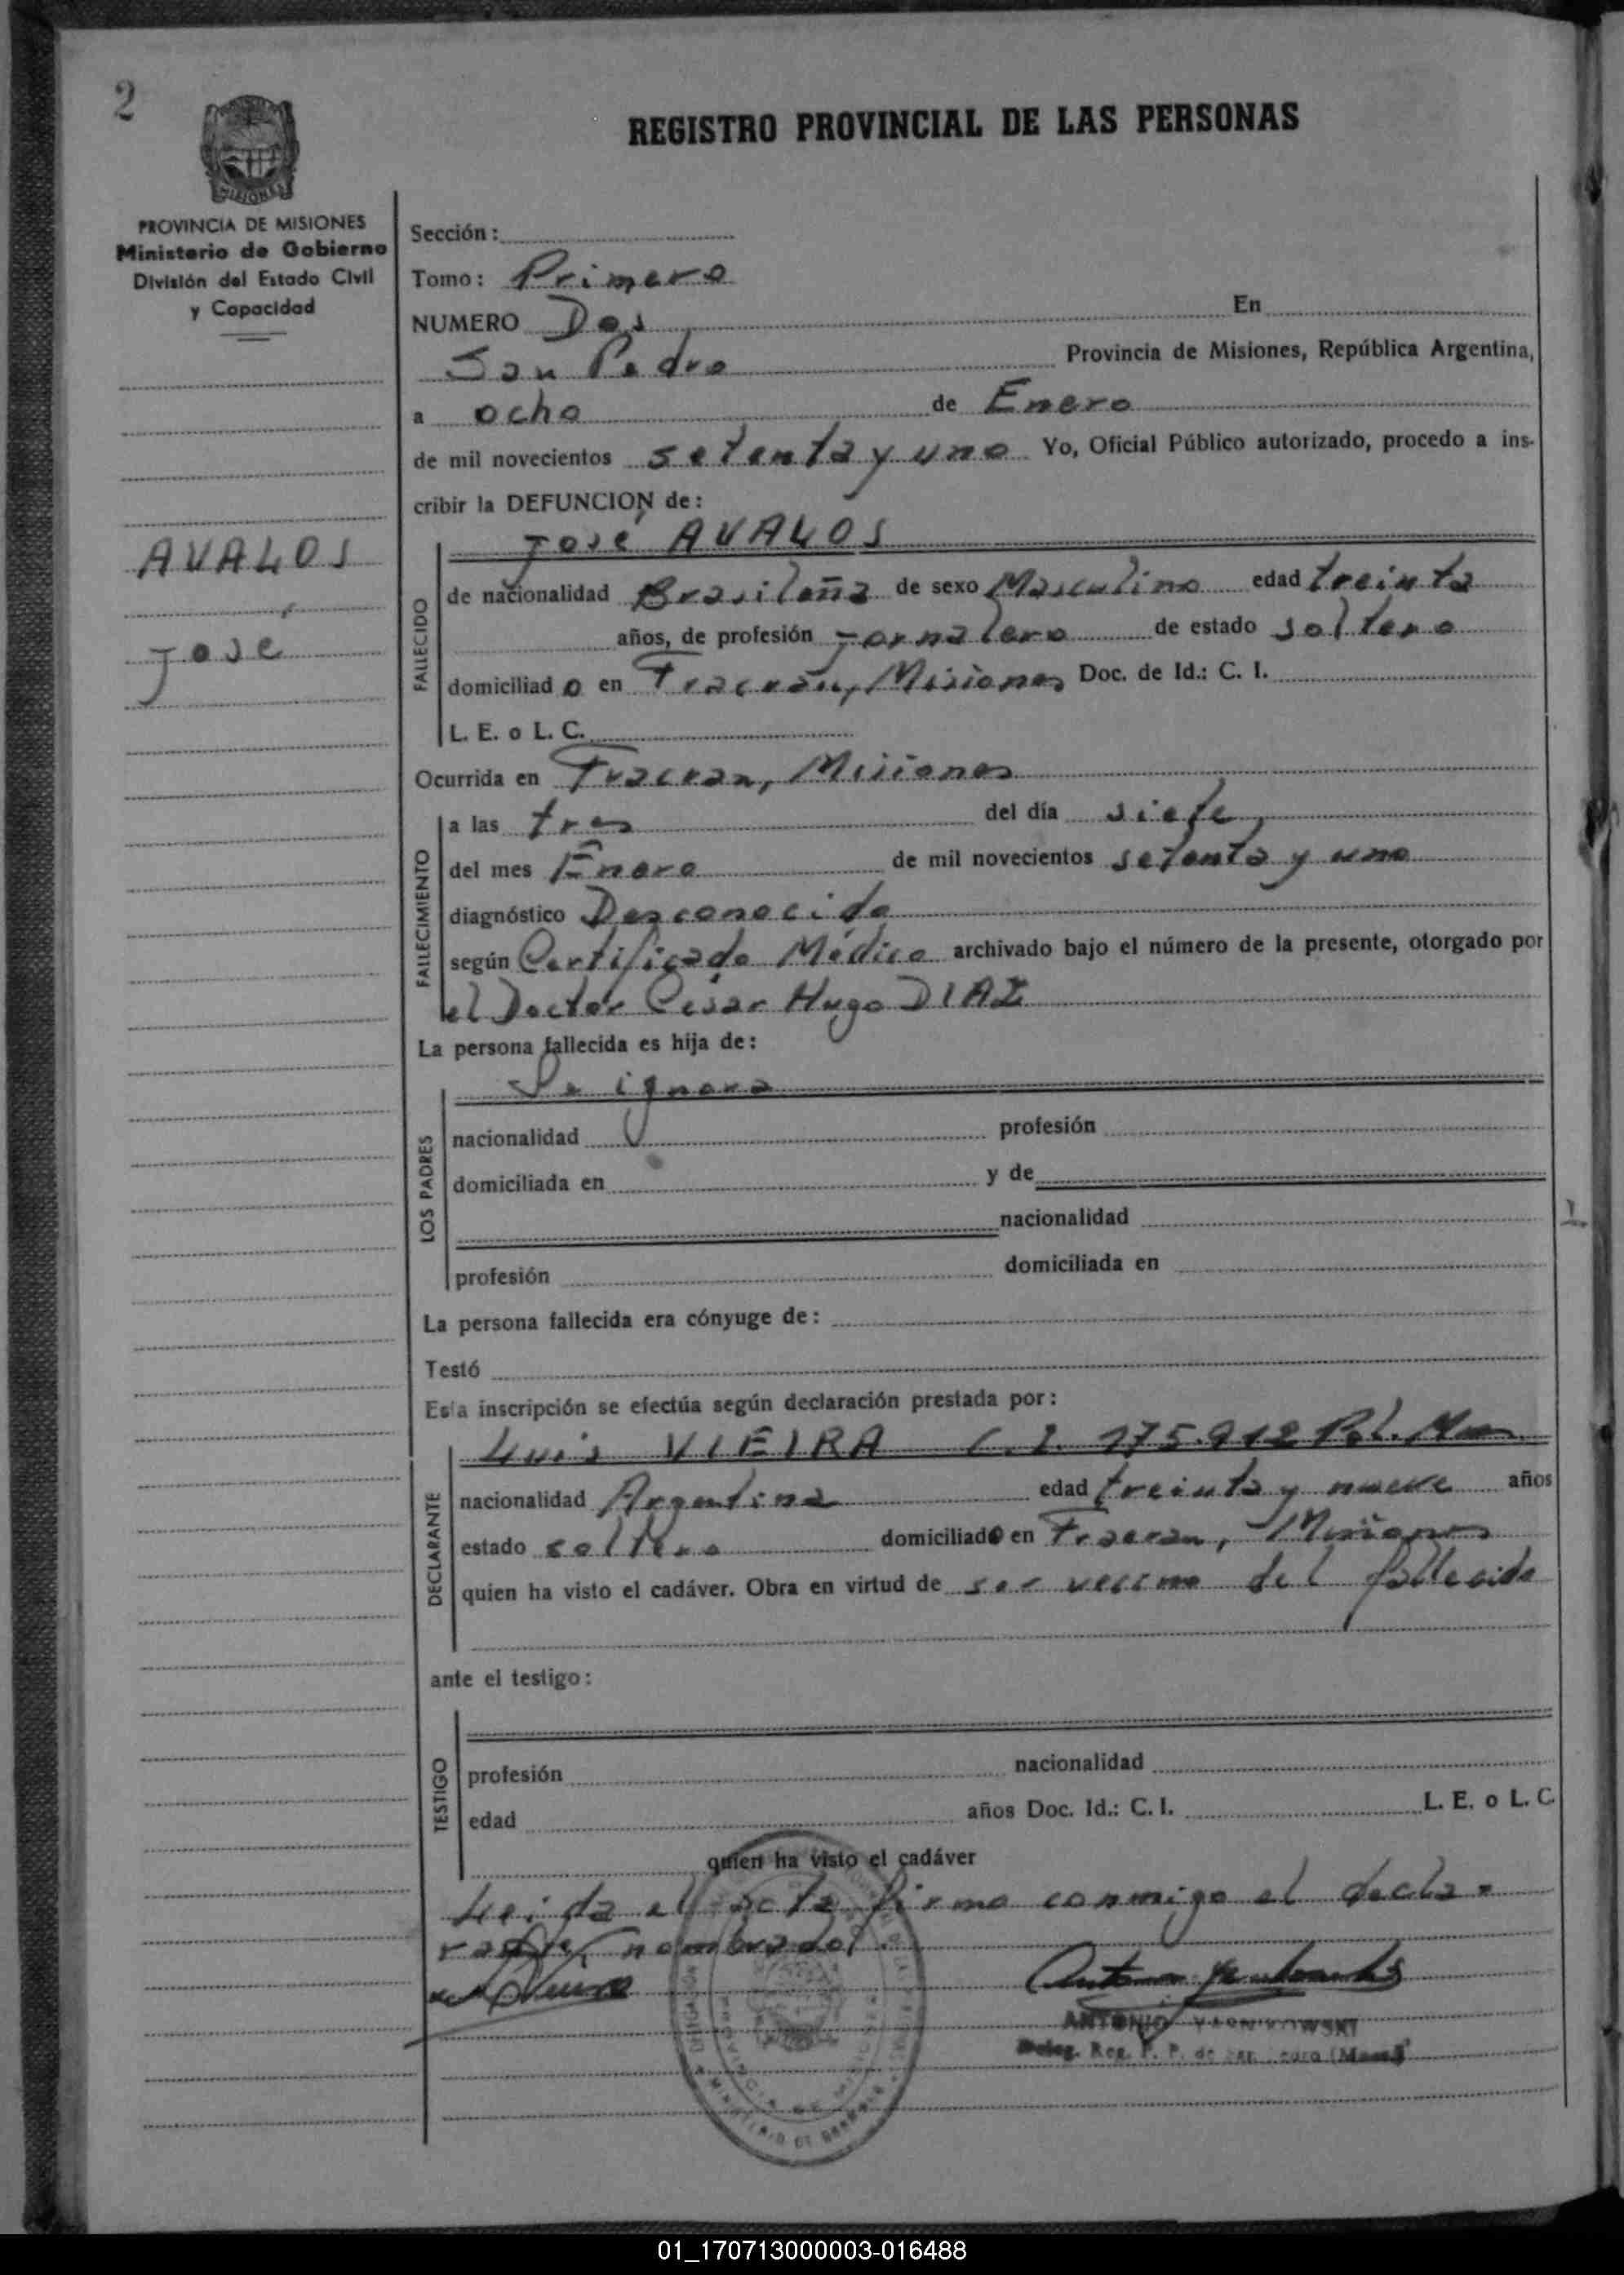 2
REGISTRO PROVINCIAL DE LAS PERSONAS
MISIONES
PROVINCIA DE MISIONES
Ministerio de Gobierno
División del Estado Civil
y Capacidad
AVALOS
José
Sección:
Tomo: Primero
NUMERO Dos En
San Pedro Provincia de Misiones, República Argentina,
a ocho de Enero
de mil novecientos setenta y uno Yo, Oficial Público autorizado, procedo a ins-
cribir la DEFUNCION de:
José AVALOS
FALLECIDO
de nacionalidad Brasileña de sexo Masculino edad treinta
años, de profesión Jornalero de estado soltero
domiciliado en Fracrán, Misiones Doc. de Id.: C. I.
L. E. o L. C.
Ocurrida en Fracran, Misiones
FALLECIMIENTO
a las tres del día siete,
del mes Enero de mil novecientos setenta y uno
diagnóstico Desconocido
según Certificado Médico archivado bajo el número de la presente, otorgado por
el Doctor César Hugo DIAZ
La persona fallecida es hija de:
Se ignora
LOS PADRES
nacionalidad profesión
domiciliada en y de
nacionalidad
profesión domiciliada en
La persona fallecida era cónyuge de:
Testó
Esta inscripción se efectúa según declaración prestada por:
Luis VIEIRA C.I. 175.912 Pol. Mnes
DECLARANTE
nacionalidad Argentina edad treinta y nueve años
estado soltero domiciliado en Fracran, Misiones
quien ha visto el cadáver. Obra en virtud de ser vecino del fallecido
ante el testigo:
TESTIGO
profesión nacionalidad
edad años Doc. Id.: C. I. L. E. o L. C.
quien ha visto el cadáver
Leida el acta firma conmigo el decla-
rante nombrado.
ANTONIO YARNIKOWSKI
Deleg. Reg. P. P. de
MINISTERIO DE GOBIERNO
PROVINCIA DE MISIONES
01_170713000003-016488